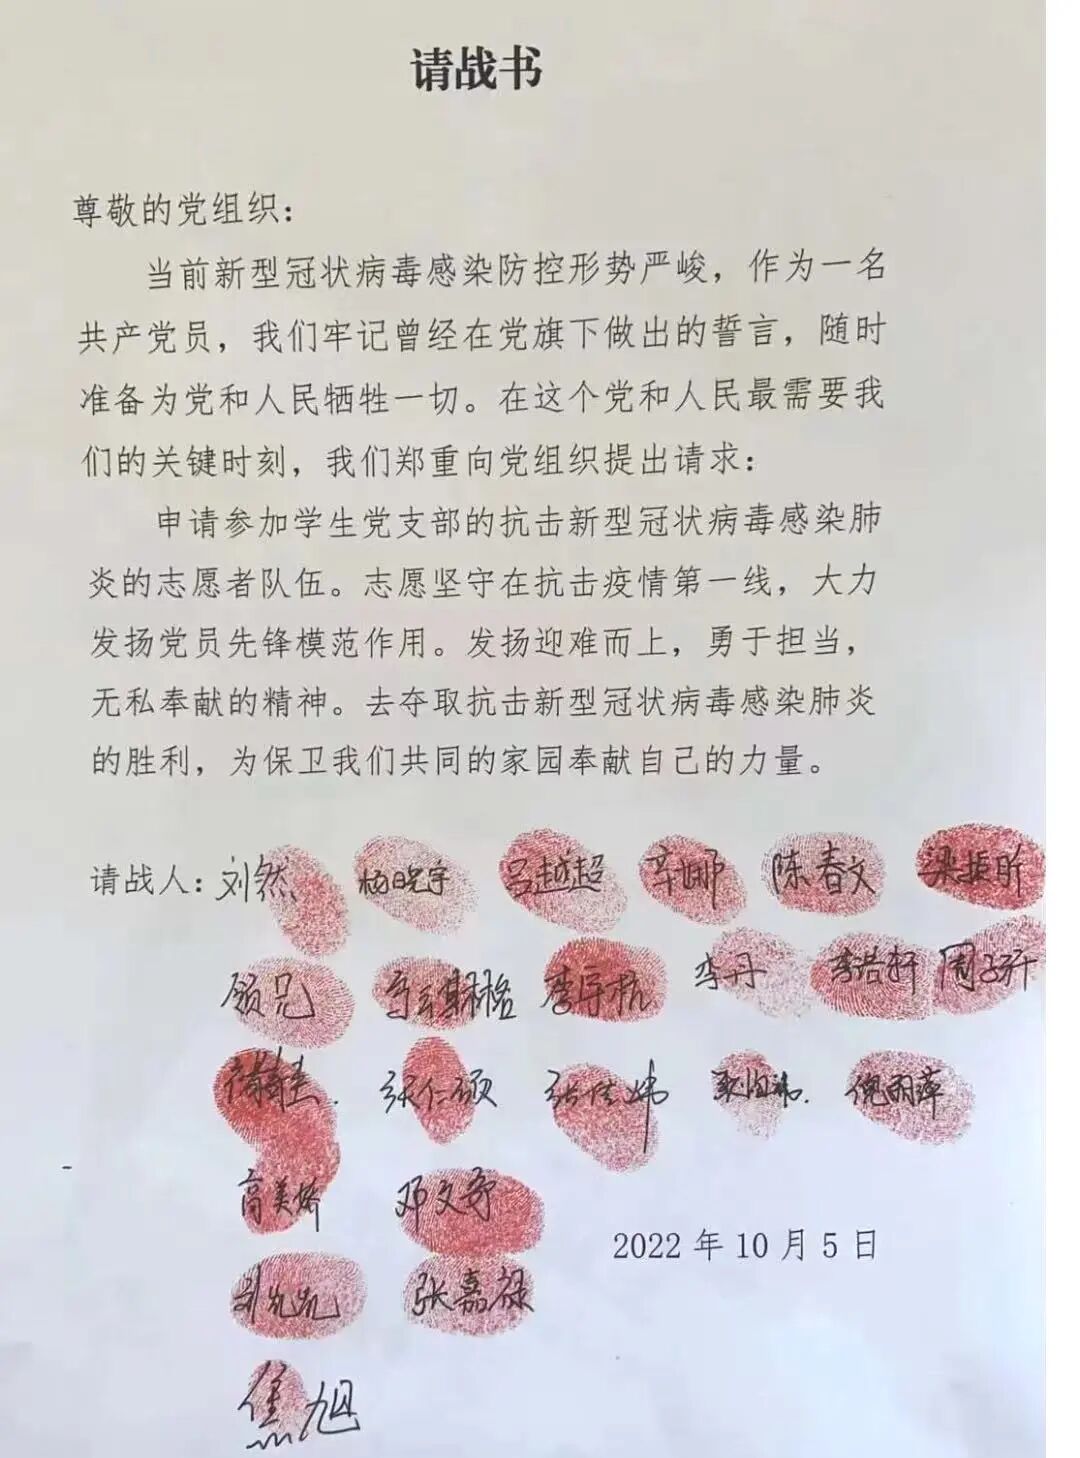 请战书
尊敬的党组织：
当前新型冠状病毒感染防控形势严峻，作为一名
共产党员，我们牢记曾经在党旗下做出的誓言，随时
准备为党和人民牺牲一切。在这个党和人民最需要我
们的关键时刻，我们郑重向党组织提出请求：
申请参加学生党支部的抗击新型冠状病毒感染肺
炎的志愿者队伍。志愿坚守在抗击疫情第一线，大力
发扬党员先锋模范作用。发扬迎难而上，勇于担当，
无私奉献的精神。去夺取抗击新型冠状病毒感染肺炎
的胜利，为保卫我们共同的家园奉献自己的力量。
请战人：刘然 杨晓宇 吕越超 辛娜 陈春文 梁振昕
顾兄 李宇杭 李丹 李浩轩 周子汗
张仁硕 张佳炜 倪丽萍
高美娇 邓文
2022 年 10 月 5 日
张嘉禄
焦旭